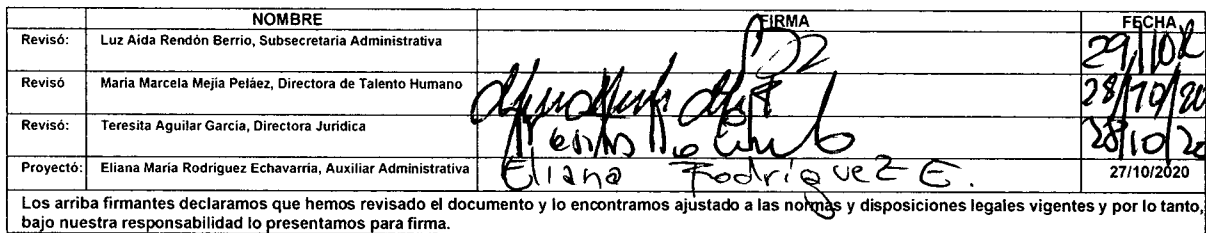 NOMBRE FIRMA FECHA
Revisó: Luz Aida Rendón Berrio, Subsecretaria Administrativa 29/10/2
Revisó Maria Marcela Mejía Peláez, Directora de Talento Humano 28/10/20
Revisó: Teresita Aguilar García, Directora Jurídica 28/10/20
Proyectó: Eliana María Rodríguez Echavarría, Auxiliar Administrativa Eliana Rodríguez E. 27/10/2020
Los arriba firmantes declaramos que hemos revisado el documento y lo encontramos ajustado a las normas y disposiciones legales vigentes y por lo tanto,
bajo nuestra responsabilidad lo presentamos para firma.